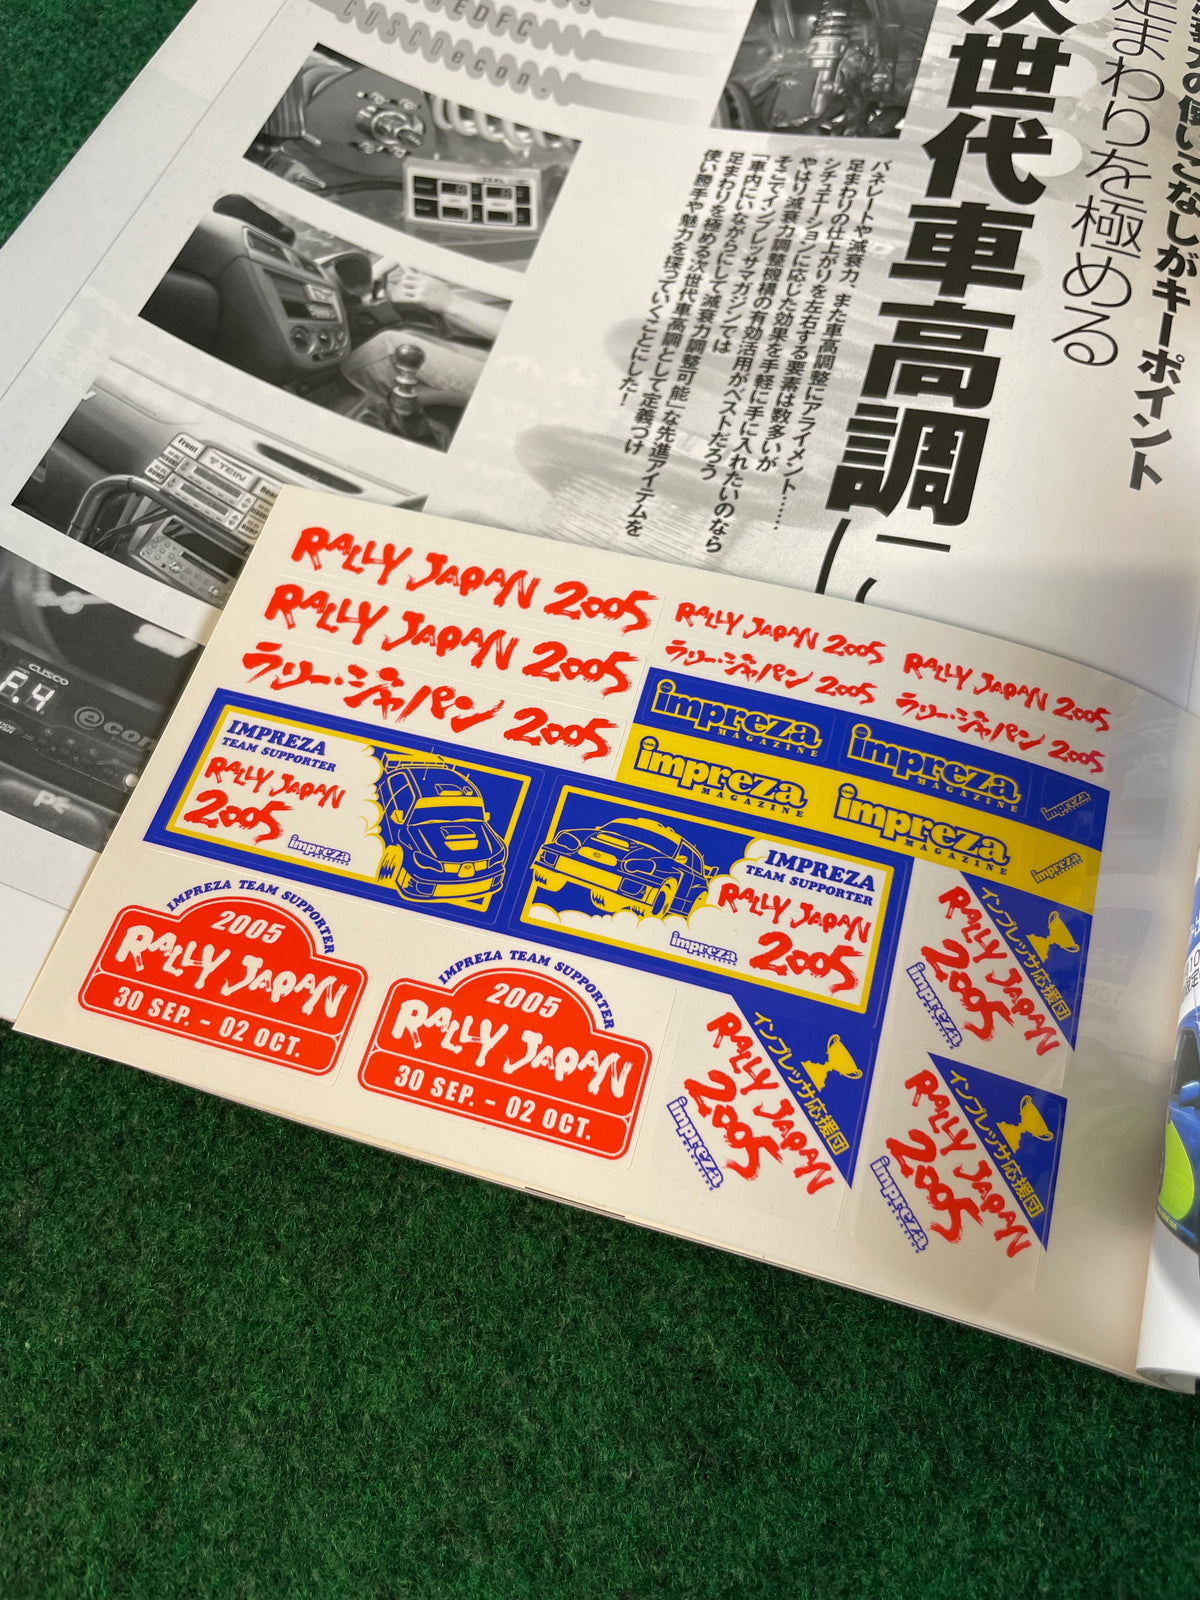 REDFC
CUSCO econ.
次世代車高調に
足まわりを極める
の使いこなしがキーポイント
バネレートや減衰力、また車高調整にアライメント……
足まわりの仕上がりを左右する要素は数多いが
シチュエーションに応じた効果を手軽に手に入れたいのなら
やはり減衰力調整機構の有効活用がベストだろう
そこでインプレッサマガジンでは
「車内にいながらにして減衰力調整可能」な先進アイテムを
足まわりを極める次世代車高調として定義づけ
使い勝手や魅力を探っていくことにした！
Front
TEIN
CUSCO
F.4
econ
RALLY JAPAN 2005
RALLY JAPAN 2005
ラリー・ジャパン 2005
RALLY JAPAN 2005
ラリー・ジャパン 2005
RALLY JAPAN 2005
ラリー・ジャパン 2005
impreza
MAGAZINE
impreza
MAGAZINE
impreza
impreza
MAGAZINE
impreza
MAGAZINE
impreza
IMPREZA
TEAM SUPPORTER
RALLY JAPAN
2005
impreza
IMPREZA
TEAM SUPPORTER
RALLY JAPAN
2005
impreza
IMPREZA TEAM SUPPORTER
2005
RALLY JAPAN
30 SEP. - 02 OCT.
IMPREZA TEAM SUPPORTER
2005
RALLY JAPAN
30 SEP. - 02 OCT.
インプレッサ応援団
RALLY JAPAN
2005
impreza
MAGAZINE
インプレッサ応援団
RALLY JAPAN
2005
impreza
MAGAZINE
インプレッサ応援団
RALLY JAPAN
2005
impreza
MAGAZINE